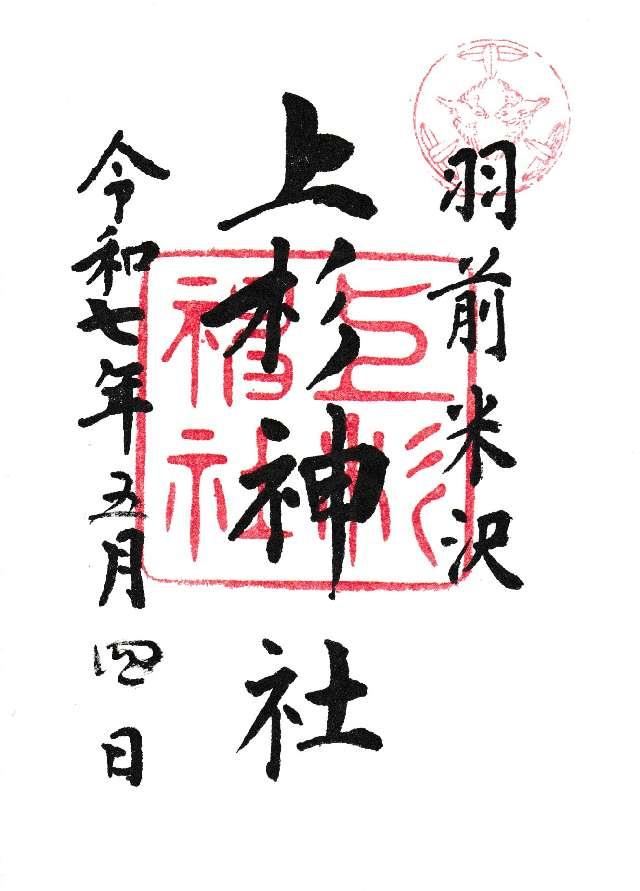 羽前米沢
上杉神社
上杉神社
令和七年五月四日